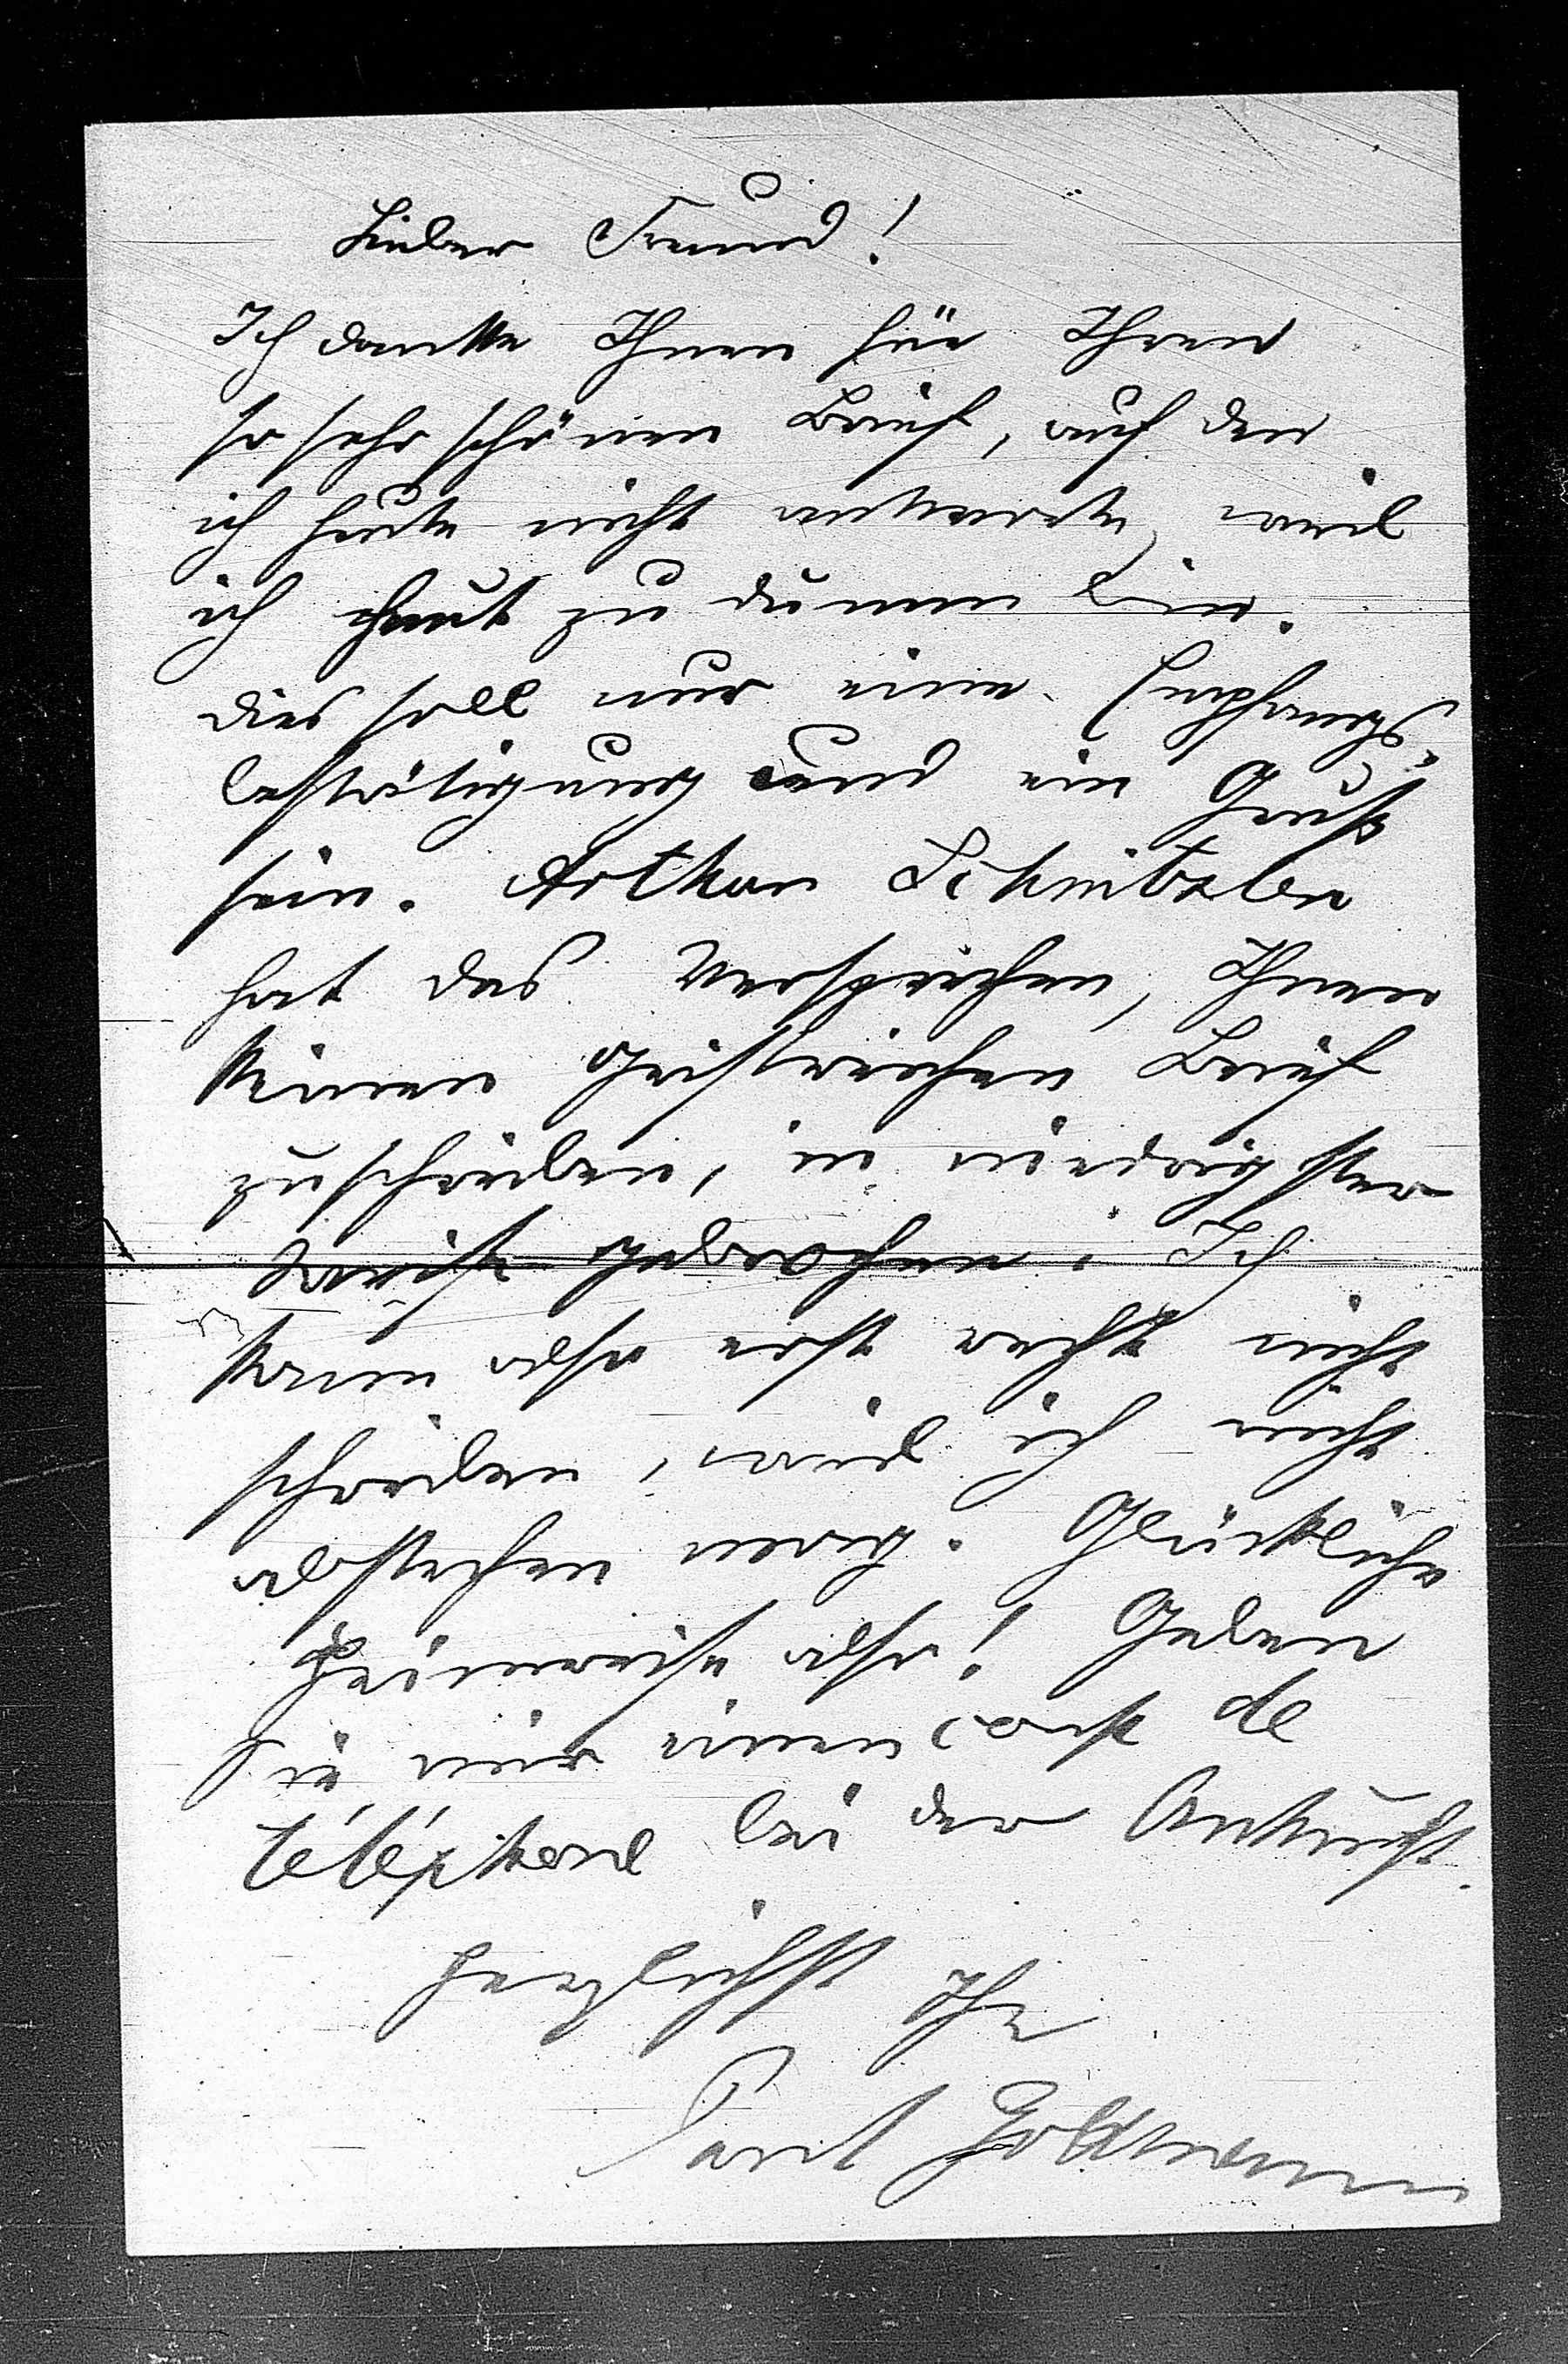 Lieber Freund!
Ich danke Ihnen für Ihren
so sehr schönen Brief, auf den
ich heute nicht antworte, weil
ich heut zu dumm bin.
dies soll nur eine Empfangs-
bestätigung und ein Gruß
sein. Arthur Schnitzler
hat das Versprechen, Ihnen
keinen geistreichen Brief
zuschreiben, in niedrigster
Weise gebrochen. Ich
kann also erst recht nicht
schreiben, weil ich nicht
abstechen mag. Glückliche
Heimreise also! Geben
Sie mir einen coup de
téléphone bei der Ankunft.
Herzlichst Ihr
Paul Goldmann